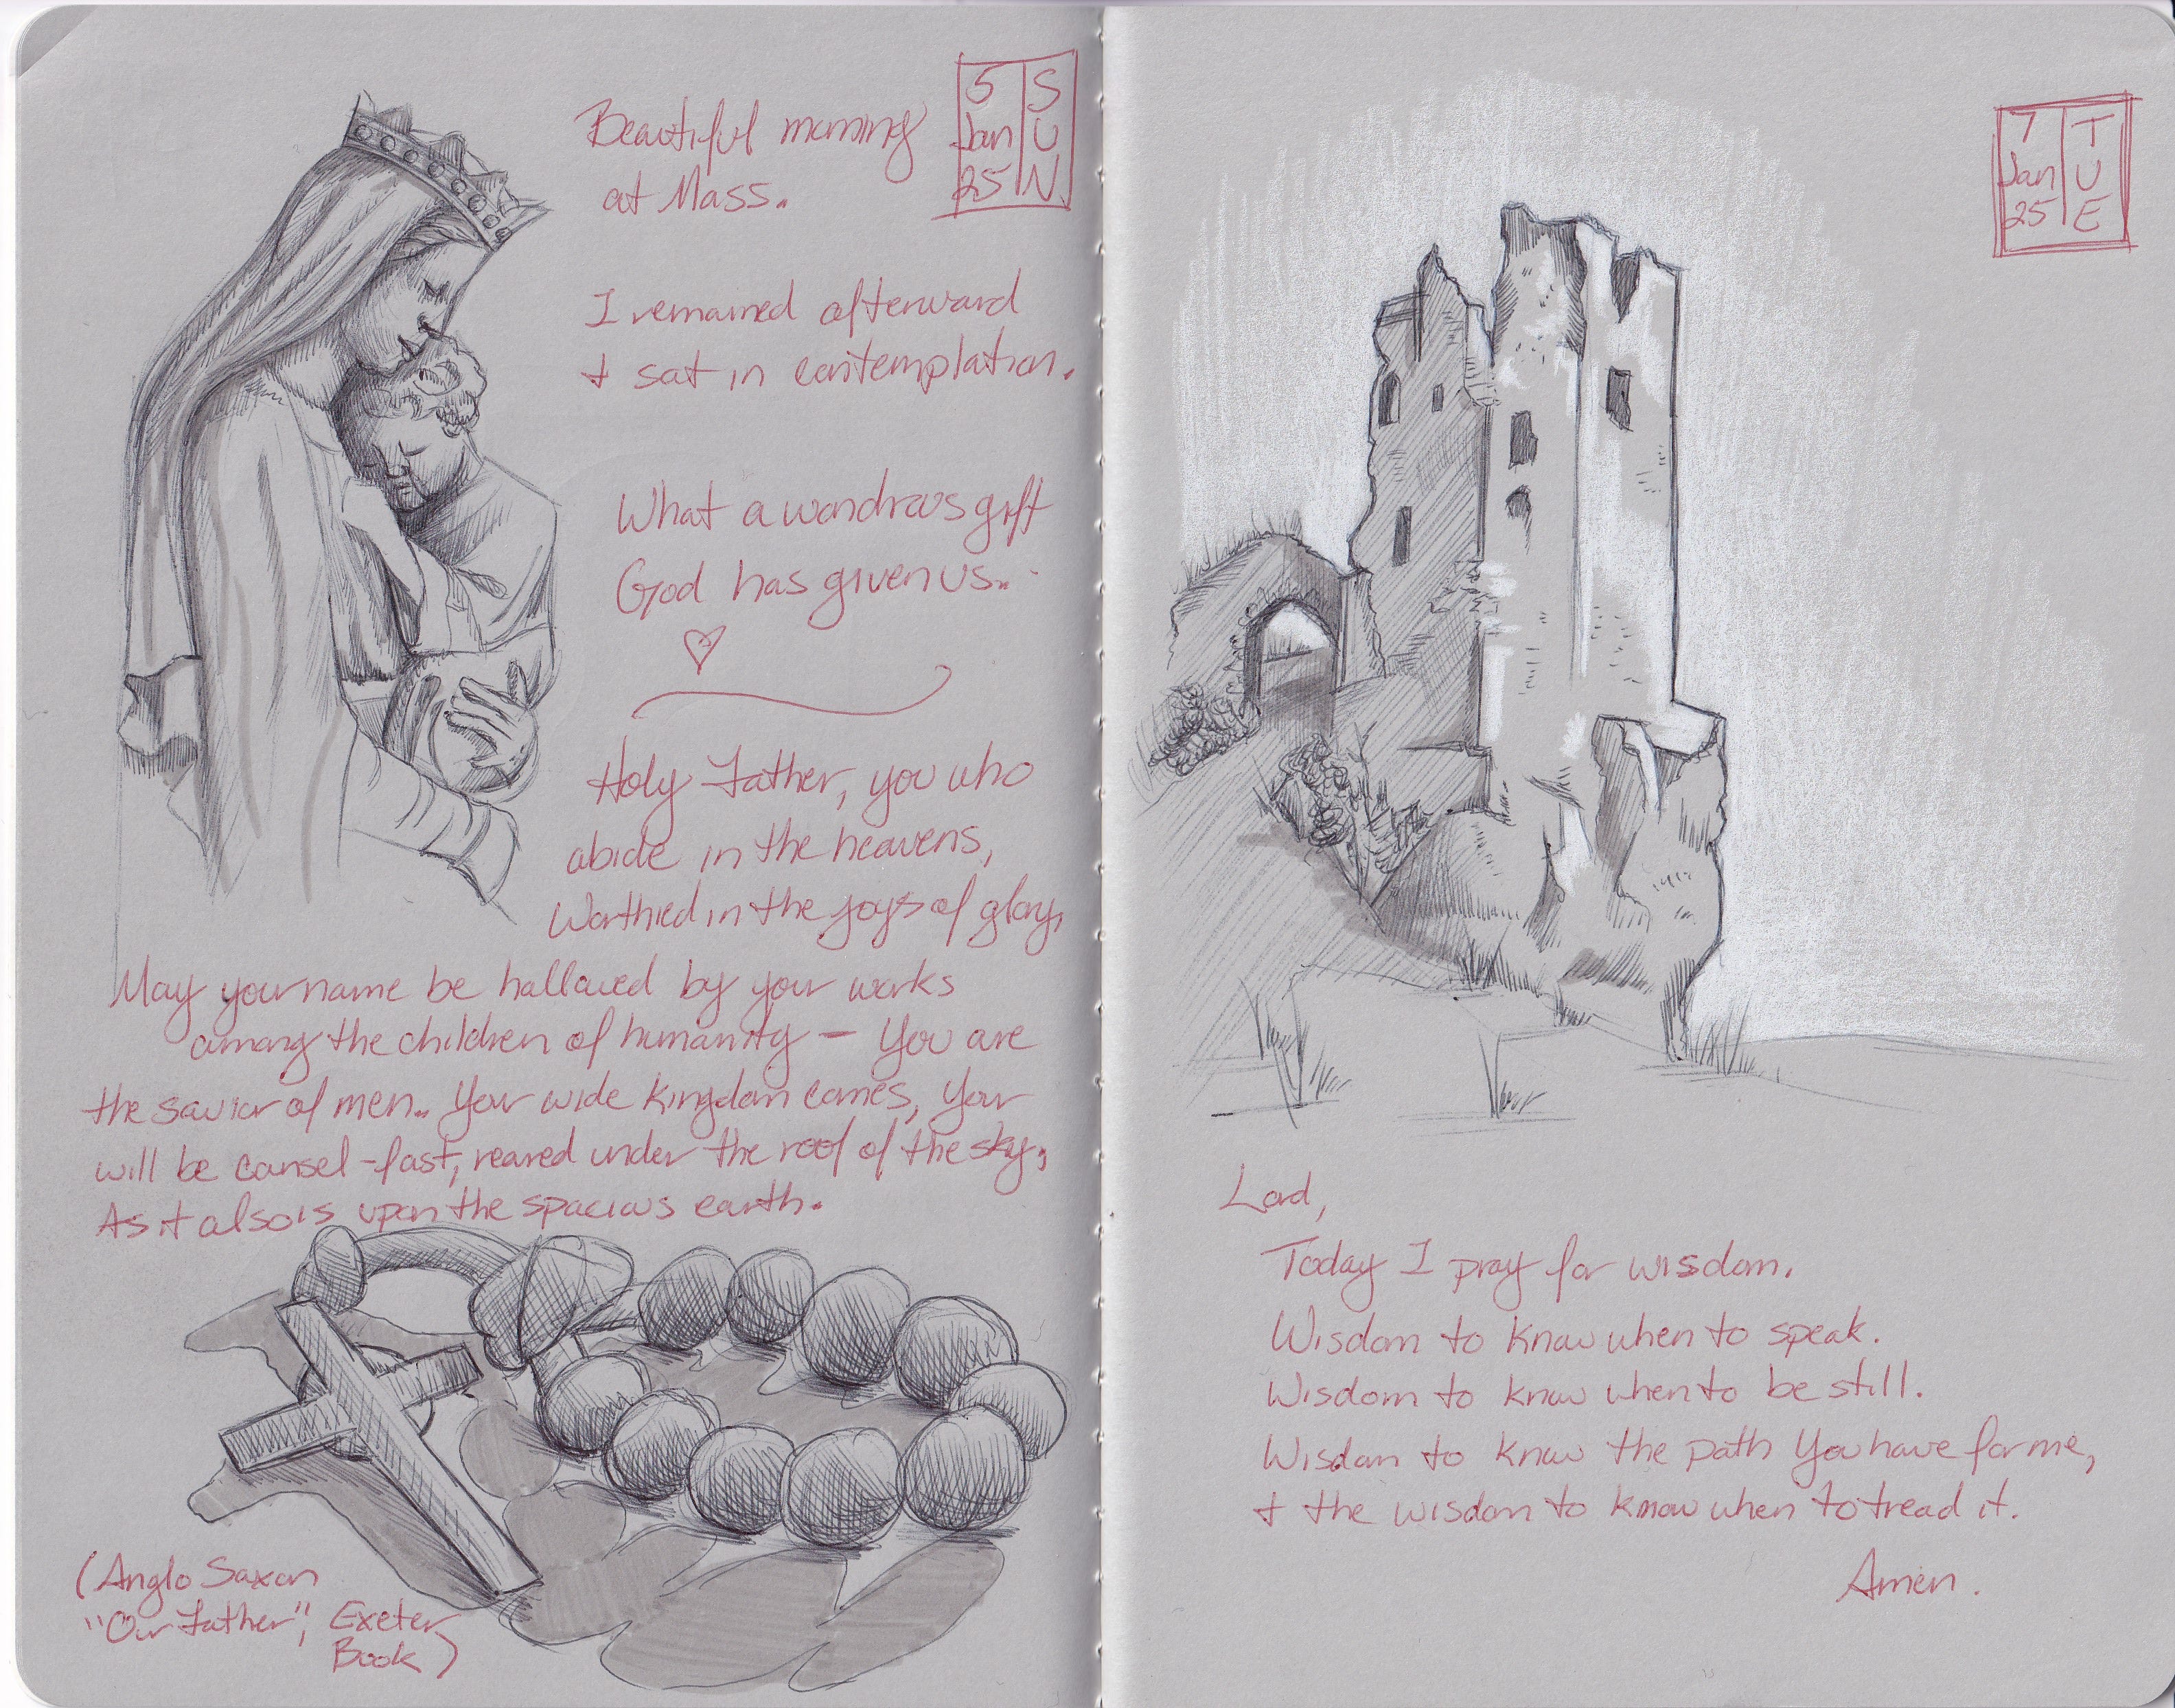 5 S
Jan U
25 N
Beautiful morning
at Mass.
I remained afterward
+ sat in contemplation.
What a wondrous gift
God has given us.
Holy Father, you who
abide in the heavens,
Worthied in the joys of glory,
May your name be hallowed by your works
among the children of humanity – You are
the savior of men. Your wide kingdom comes, Your
will be counsel-fast, reared under the roof of the sky,
As it also is upon the spacious earth.
(Anglo Saxon
"Our Father", Exeter
Book)
7 T
Jan U
25 E
Lord,
Today I pray for wisdom.
Wisdom to know when to speak.
Wisdom to know when to be still.
Wisdom to know the path You have for me,
+ the wisdom to know when to tread it.
Amen.